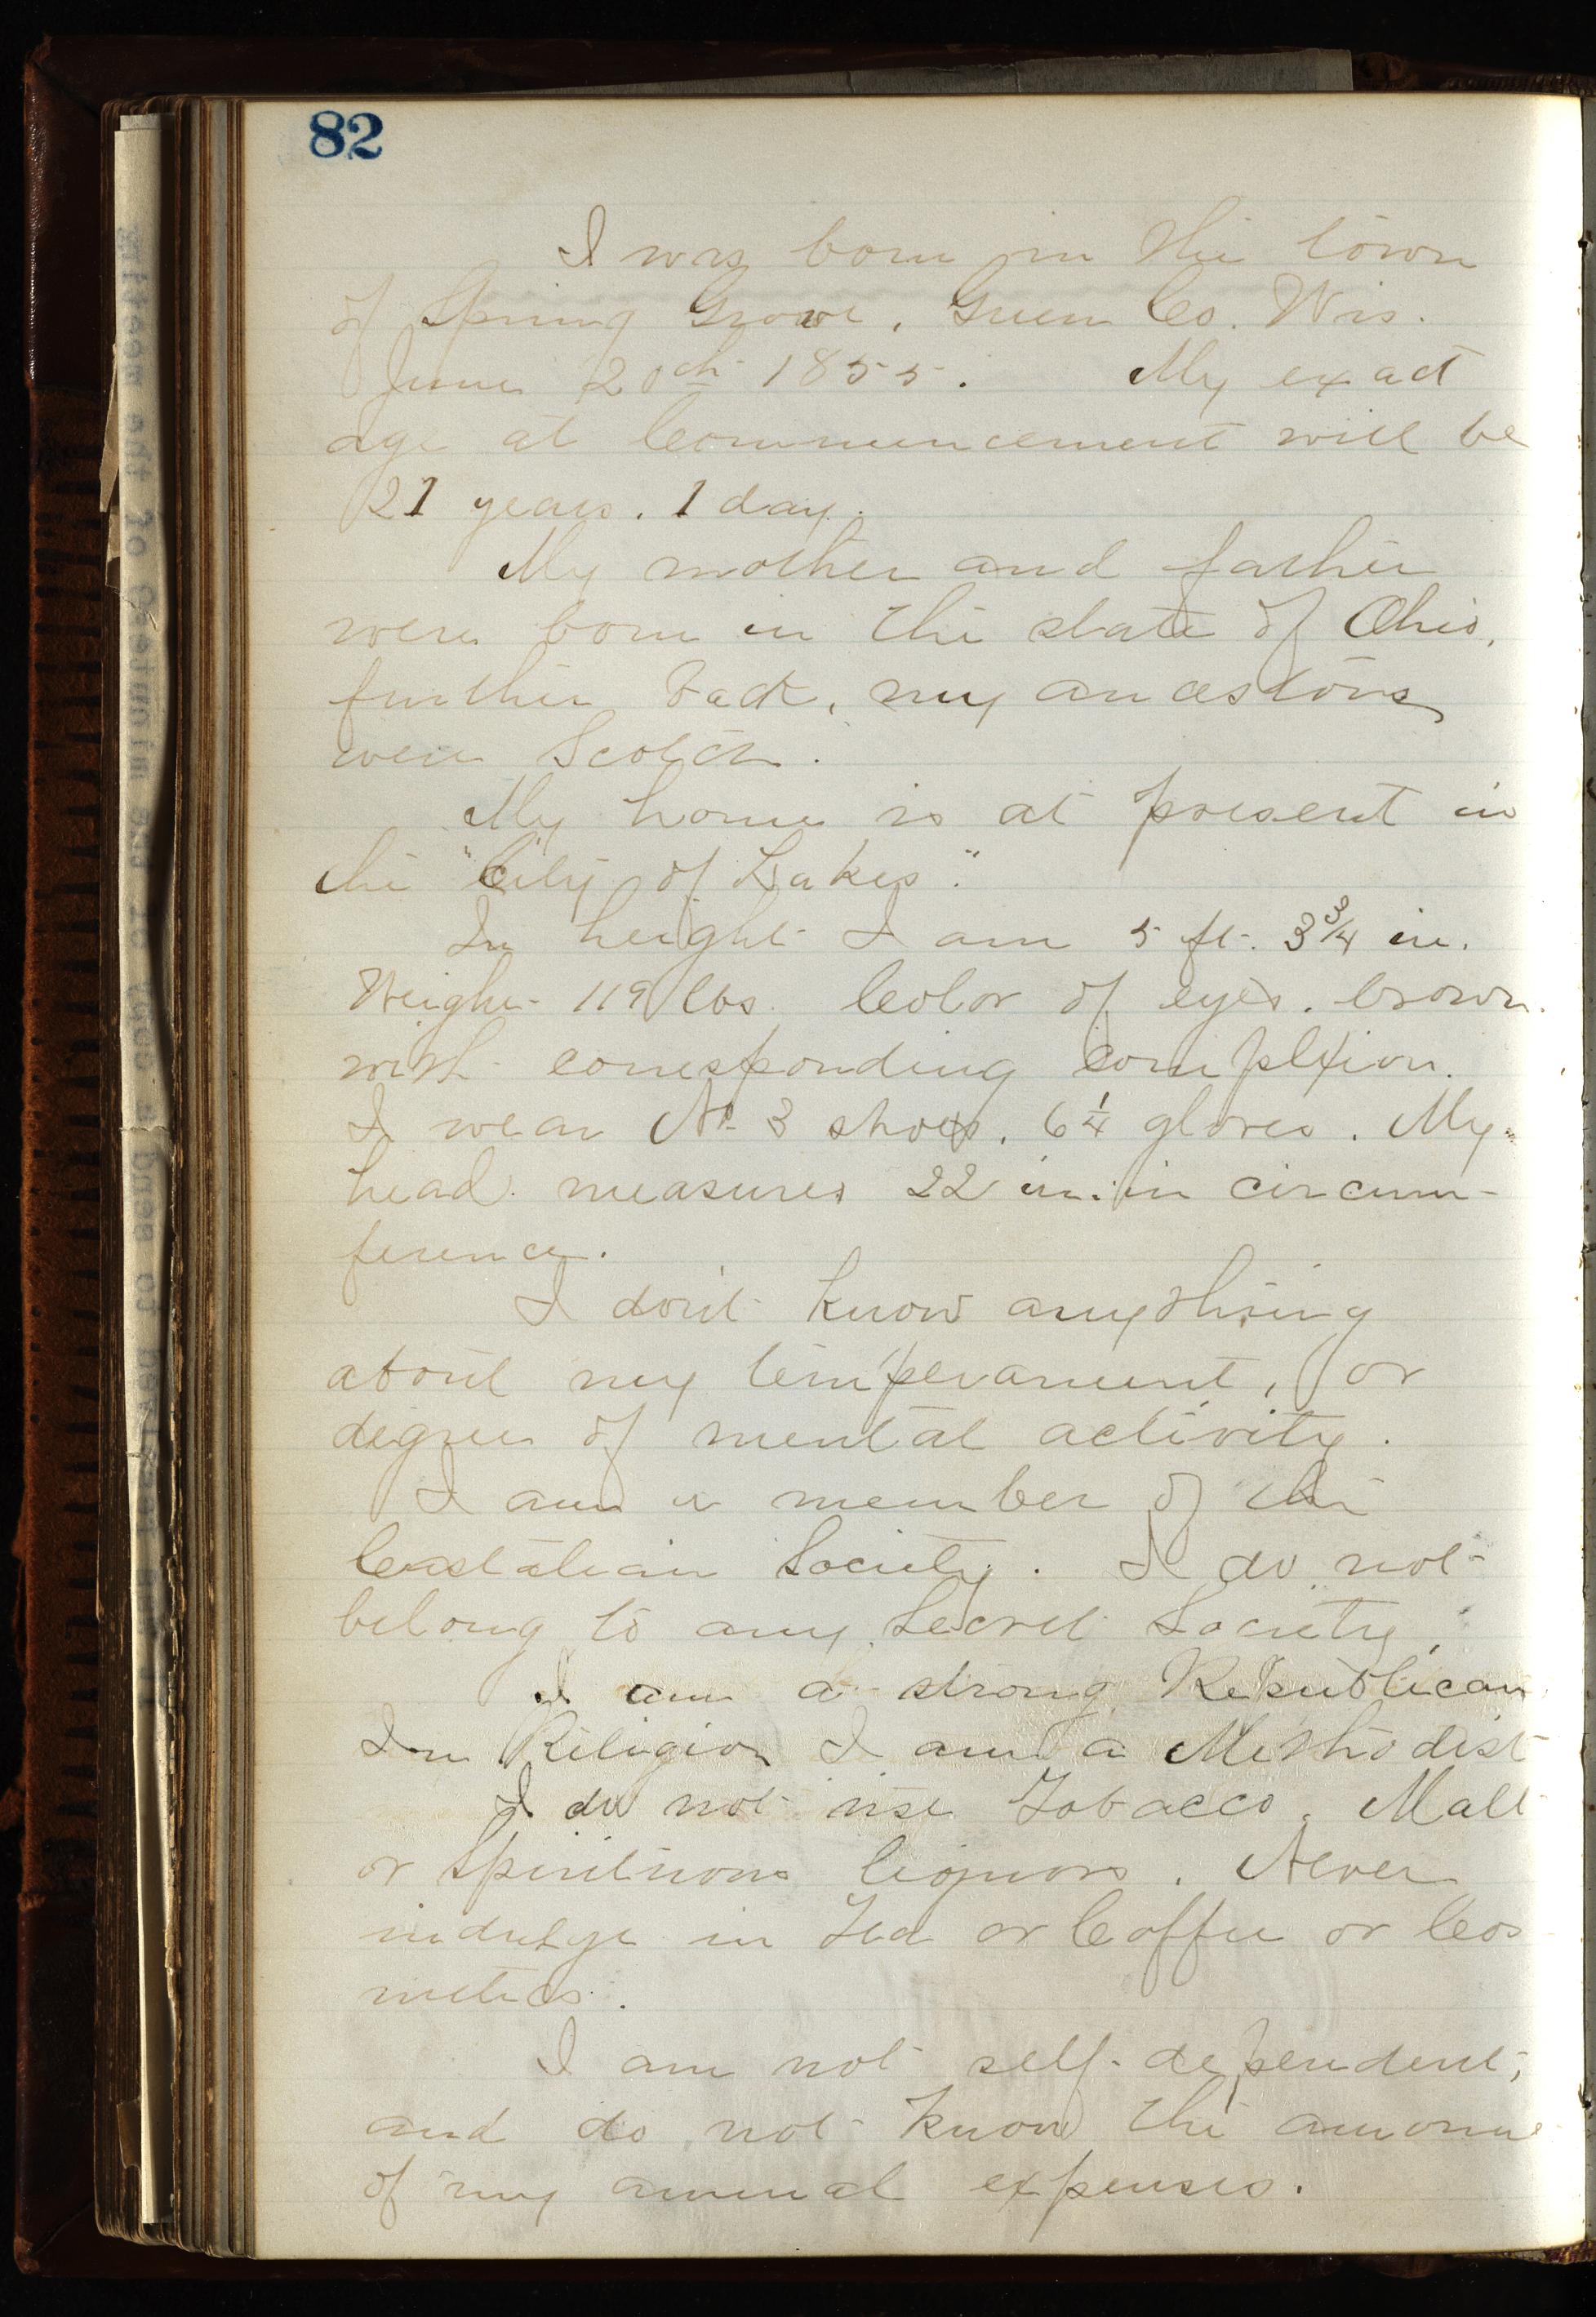 82
I was born in the town
of Spring Grove, Green Co. Wis.
June 20th 1855. My exact
age at Commencement will be
21 years. 1 day.
My mother and father
were born in the state of Ohio,
further back, my ancestors
were Scotch.
My home is at present in
the "City of Lakes."
In height I am 5 ft. 3 3/4 in.
Weight 119 lbs. Color of eyes. brown.
with corresponding complexion.
I wear No 3 shoes, 6 1/4 gloves. My
head measures 22 in. in circum-
ference.
I don't know anything
about my temperament, or
degree of mental activity.
I am a member of the
Castalian Society. I do not
belong to any Secret Society.
I am a strong Republican
In Religion I am a Methodist
I do not use Tobacco, Malt
or Spirituous liquors. Never
indulge in Tea or Coffee or Cos
metics.
I am not self-dependent,
and do not know the amount
of my annual expenses.